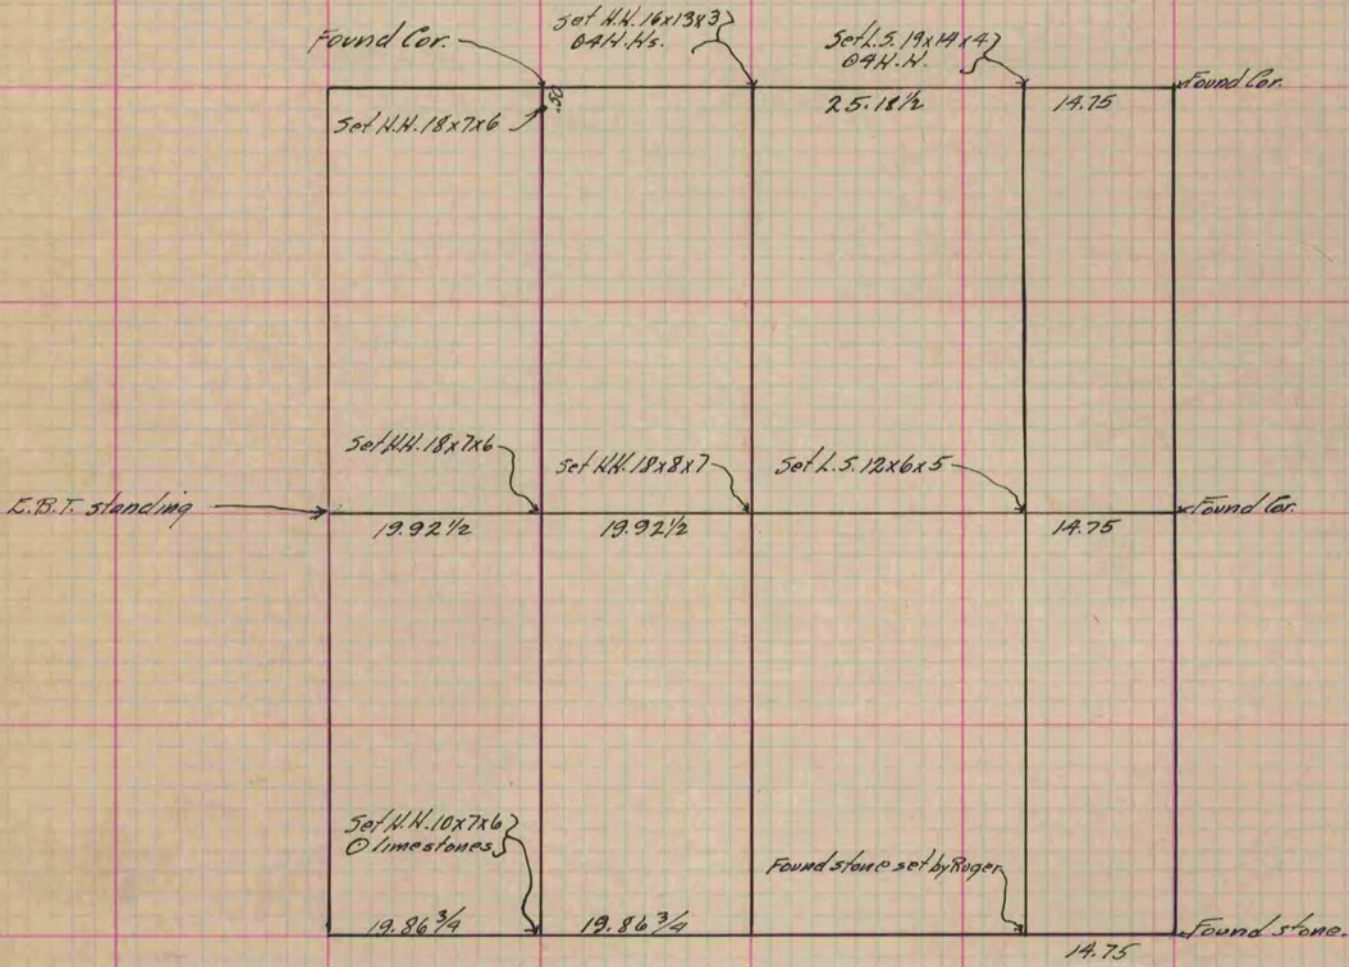 Found Cor.
Set H.H. 16x13x3
⊙4H.Hs.
Set L.S. 19x14x4
⊙4H.H.
Found Cor.
25.18½
14.75
Set H.H. 18x7x6
Set H.H. 18x7x6
Set H.H. 18x8x7
Set L.S. 12x6x5
E.B.T. standing
Found Cor.
19.92½
19.92½
14.75
Set H.H. 10x7x6
⊙ limestones
Found stone set by Ruger
19.86¾
19.86¾
Found stone.
14.75